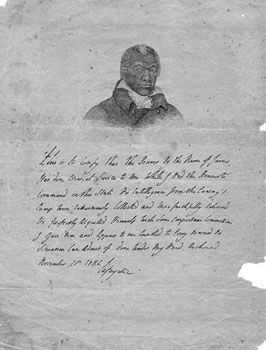 This is to Certify that the Bearer By the Name of James
Has done Essential Services to me While I Had the Honour to
Command in this State. His Intelligences from the Ennemy's
Camp were Industriously Collected and More faithfully deliver'd
He perfectly Acquitted Himself with Some Important Commissions
I Gave Him and Appears to me Entitled to Every Reward his
Situation Can Admit of. Done Under my Hand, Richmond
November 21st 1784
Lafayette